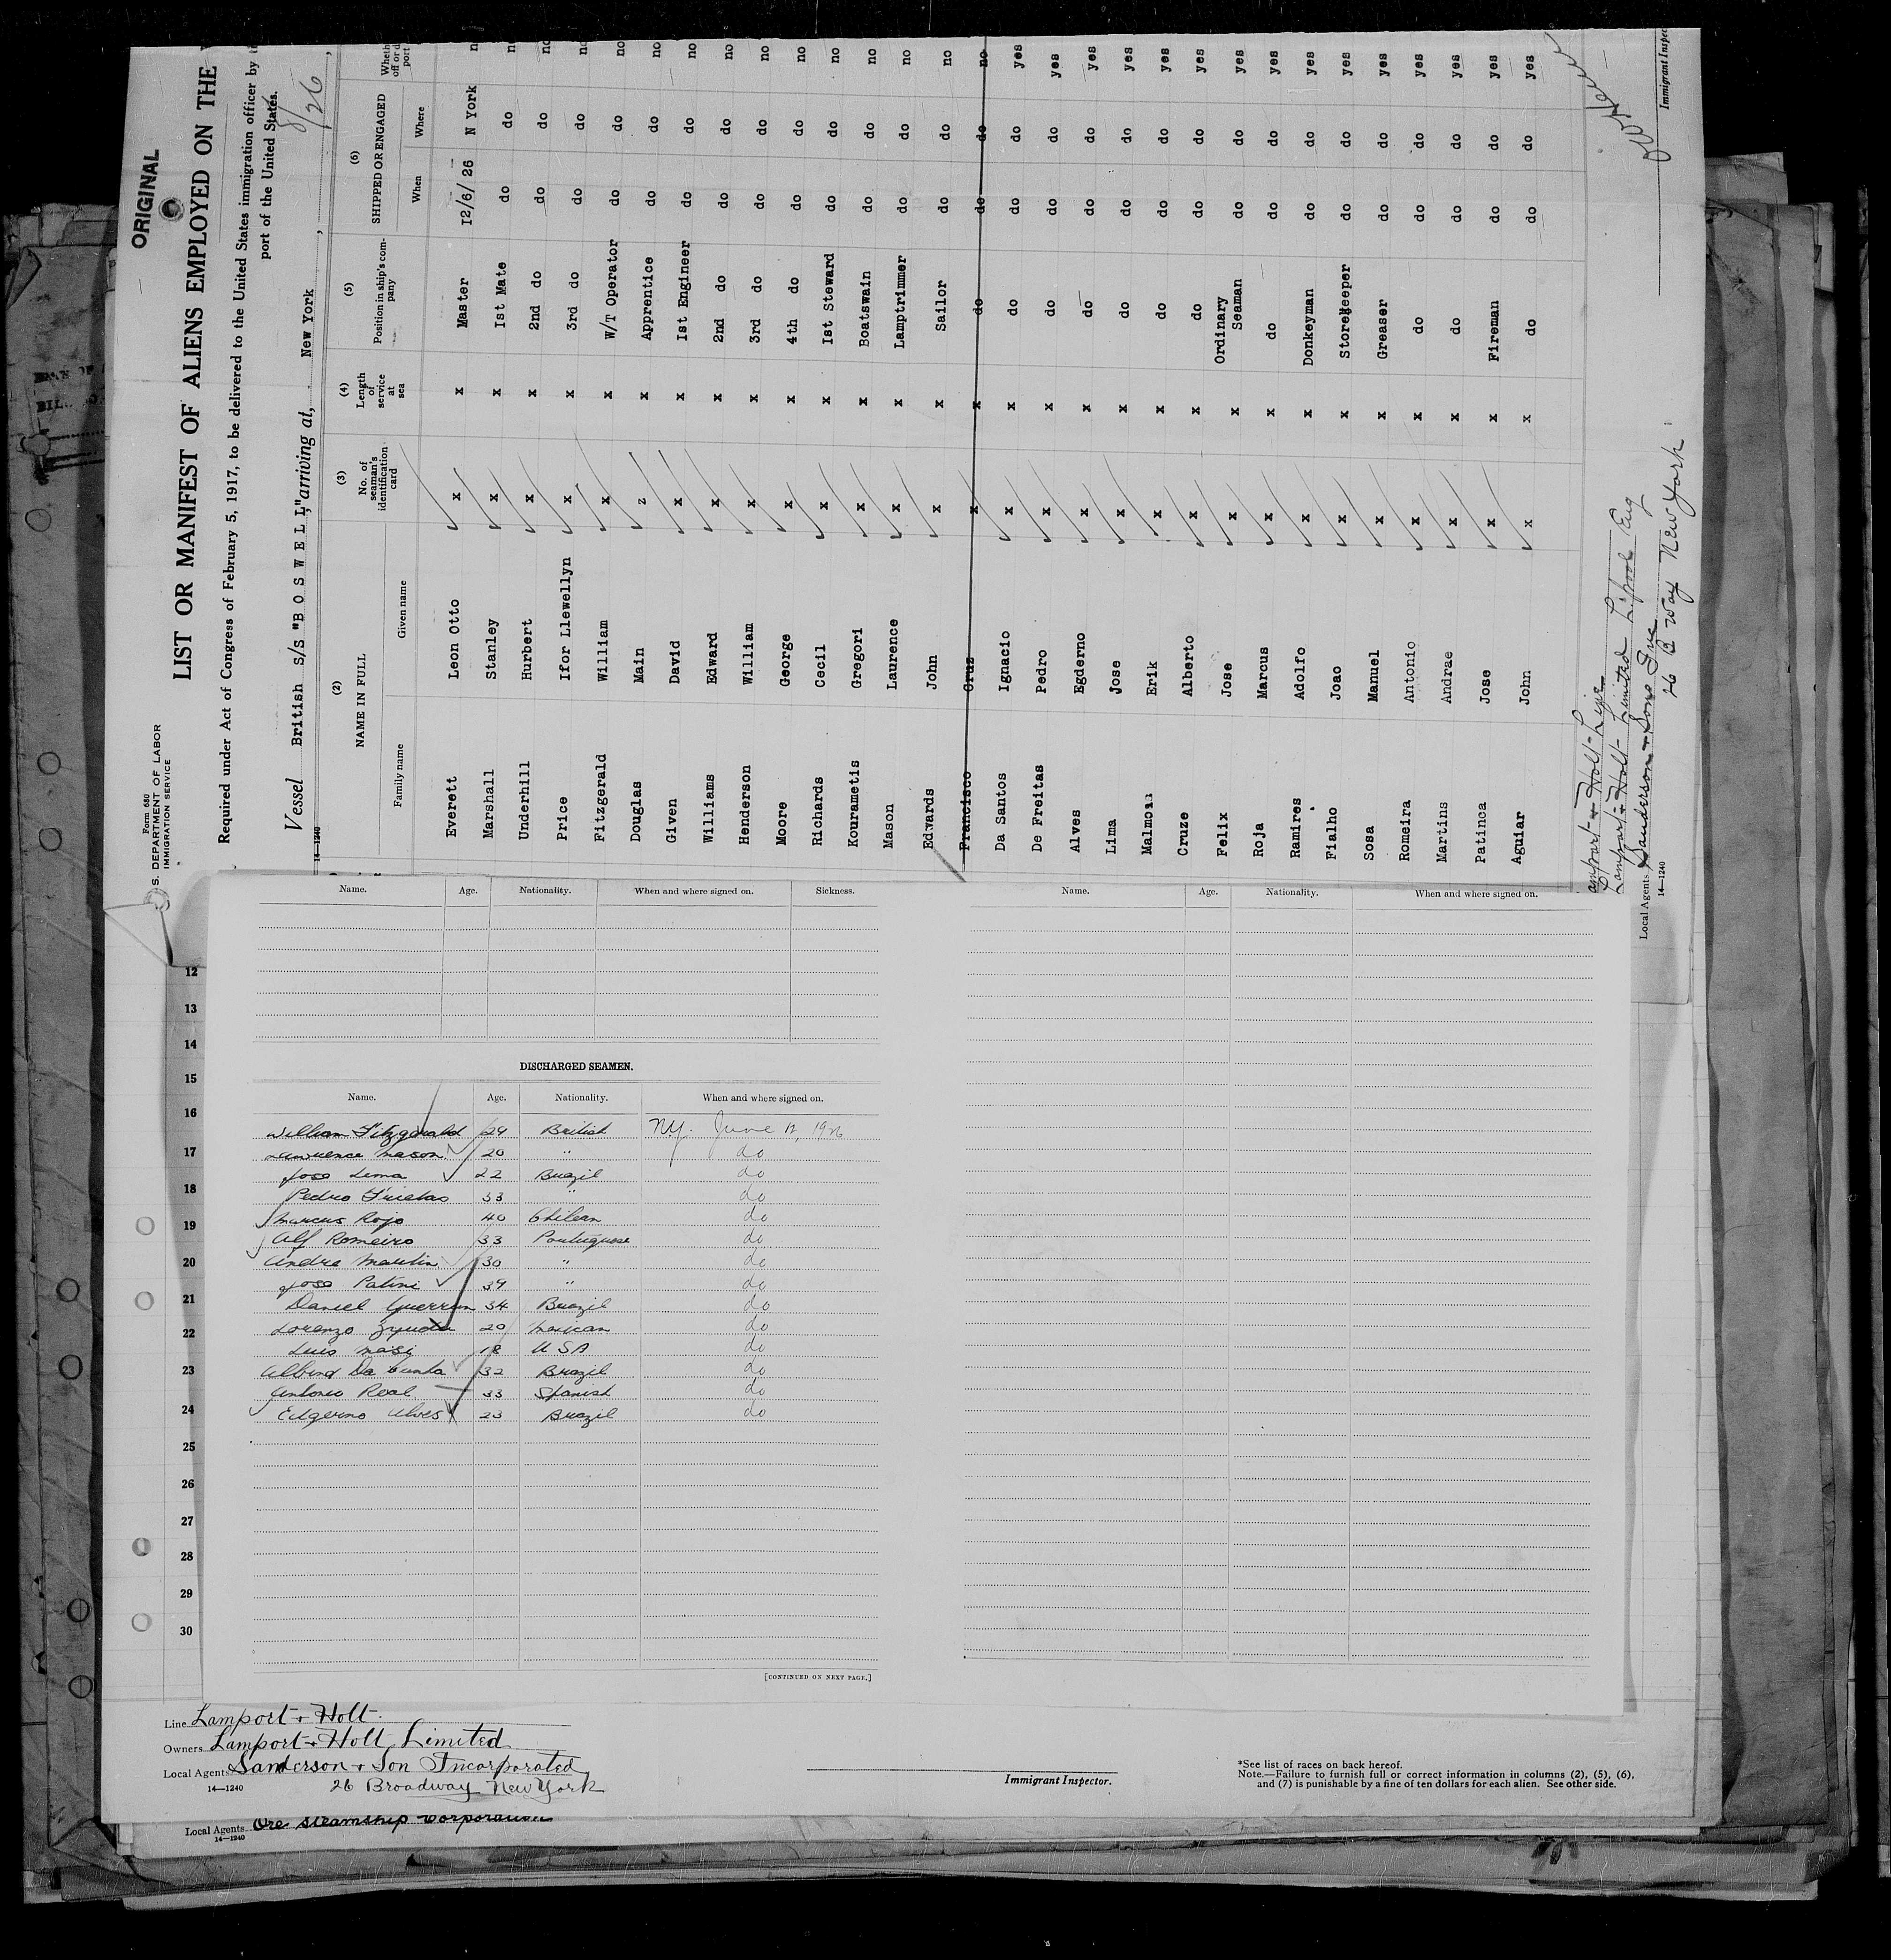 ORIGINAL
Form 680
S. DEPARTMENT OF LABOR
IMMIGRATION SERVICE
LIST OR MANIFEST OF ALIENS EMPLOYED ON THE
Required under Act of Congress of February 5, 1917, to be delivered to the United States immigration officer by
port of the United States.
Vessel British s/s "B O S W E L L", arriving at, New York
14—1240
(2) (3) (4) (5) (6)
NAME IN FULL No. of seaman's identification card Length of service at sea Position in ship's company SHIPPED OR ENGAGED
Family name Given name When Where
Everett Leon Otto x x Master 12/6/ 26 N York
Marshall Stanley x x Ist Mate do do no
Underhill Hurbert x x 2nd do do do no
Price Ifor Llewellyn x x 3rd do do do no
Fitzgerald William x x W/T Operator do do no
Douglas Main z x Apprentice do do no
Given David x x Ist Engineer do do no
Williams Edward x x 2nd do do do no
Henderson William x x 3rd do do do no
Moore George x x 4th do do do no
Richards Cecil x x Ist Steward do do no
Kourametis Gregori x x Boatswain do do no
Mason Laurence x x Lamptrimmer do do no
Edwards John x x Sailor do do no
Francisco Cruz x x do do do no
Da Santos Ignacio x x do do do yes
De Freitas Pedro x x do do do yes
Alves Egderno x x do do do yes
Lima Jose x x do do do yes
Malmoin Erik x x do do do yes
Cruze Alberto x x do do do yes
Felix Jose x x Ordinary Seaman do do yes
Roja Marcus x x do do do yes
Ramires Adolfo x x Donkeyman do do yes
Fialho Joao x x Storekeeper do do yes
Sosa Manuel x x Greaser do do yes
Romeira Antonio x x do do do yes
Martins Andrae x x do do do yes
Patinca Jose x x Fireman do do yes
Aguiar John x x do do do yes
Lamport & Holt Line
Lamport & Holt Limited L'pool Eng
Local Agents Sanderson & Sons Inc
26 B'way New York
14—1240
Immigrant Inspec
Name. Age. Nationality. When and where signed on. Sickness.
Name. Age. Nationality. When and where signed on.
12
13
14
15
16
17
18
19
20
21
22
23
24
25
26
27
28
29
30
DISCHARGED SEAMEN.
Name. Age. Nationality. When and where signed on.
William Fitzgerald 29 British N.Y. June 12, 1926
Lawrence Mason 20 " do
Jose Lima 22 Brazil do
Pedro Frietas 33 " do
Marcus Rojo 40 Chilean do
Alf Romeiro 33 Portuguese do
Andre Martin 30 " do
Jose Patini 39 " do
Daniel 34 Brazil do
Lorenzo 20 Mexican do
Luis 18 U S A do
Albino Da Cunha 32 Brazil do
Antonio Real 33 Spanish do
Edgerno Alves 23 Brazil do
[CONTINUED ON NEXT PAGE.]
Line Lamport & Holt.
Owners Lamport & Holt Limited
Local Agents Sanderson & Son Incorporated
14—1240 26 Broadway New York
Immigrant Inspector.
*See list of races on back hereof.
Note.—Failure to furnish full or correct information in columns (2), (5), (6),
and (7) is punishable by a fine of ten dollars for each alien. See other side.
Local Agents Ore Steamship Corporation
14—1240